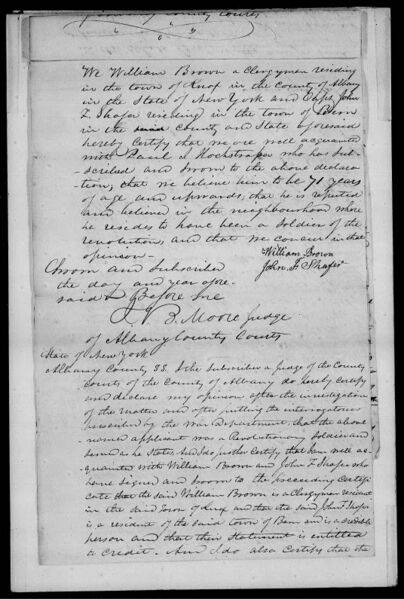 of County Courts
We William Brown a Clergyman residing
in the town of Knox in the County of Albany
in the State of New York and Capt John
F. Shafer residing in the town of Bern
in the said County and State aforesaid
hereby Certify that we are well acquainted
with Paul J Hochstraper who has sub-
scribed and sworn to the above declara-
tion, that we believe him to be 71 years
of age and upwards, that he is reputed
and believed in the neighbourhood where
he resides to have been a soldier of the
revolution and that we concur in that
opinion
William Brown
John F Shafer
Sworn and Subscribed
the day and year afore-
said Before me
B. Moore Judge
of Albany County Courts
State of New York
Albany County SS. I the Subscriber a Judge of the County
Courts of the County of Albany do hereby certify
and declare my opinion after the investigation
of the matter and after putting the interrogatories
prescribed by the War Department that the above
named applicant was a Revolutionary Soldier and
served as he states. And I do further Certify that I am well ac-
quainted with William Brown and John F Shafer who
have signed and sworn to the preceeding Certifi-
cate that the said William Brown is a Clergyman resident
in the said town of Knox and that the said John F Shafer
is a resident of the said town of Bern and is a credible
person and that their statement is entitled
to credit. And I do also Certify that the